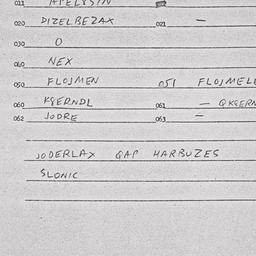 011 APELYSIN
020 DIZELBEZAX 021 —
030 O
040 NEX
050 FLOJMEN 051 FLOJMEL
060 KGERNDL 061 — QKGERN
062 JODRE 063 —
JODERLAX QAP HARBUZES
SLONIC